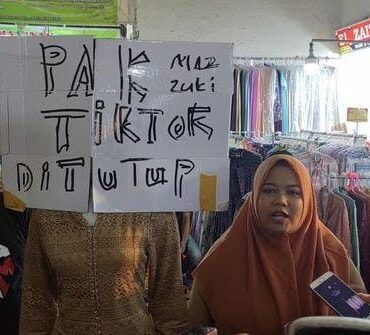 PAK MAZ
zuki
TiKTOK
DiTUTUP
ZAI